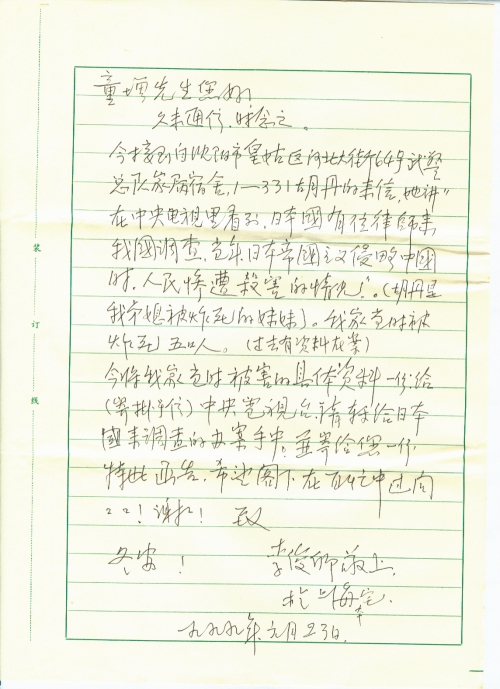 童增先生您好
久未通信,时念之。
今接到自沈阳市皇姑区河北大街64号武警
总队家属宿舍,1—331胡丹的来信,她讲"
在中央电视里看到,日本國有位律師来
我國调查,当年日本帝國主义侵略中國
时,人民惨遭殺害的情况"。(胡丹是
我弟媳被炸死的妹妹)。我家当时被
炸死五口人。(过去有资料在案)
今将我家当时被害的具体资料一份:给
中央電視台,請转给日本
國来調查的办案手中,並寄给您一份,
特此函告,希望阁下在百忙中过问
!谢谢! 致
冬安!
李俊 敬上,
於上海
一九九九年元月23日.
装
订
线